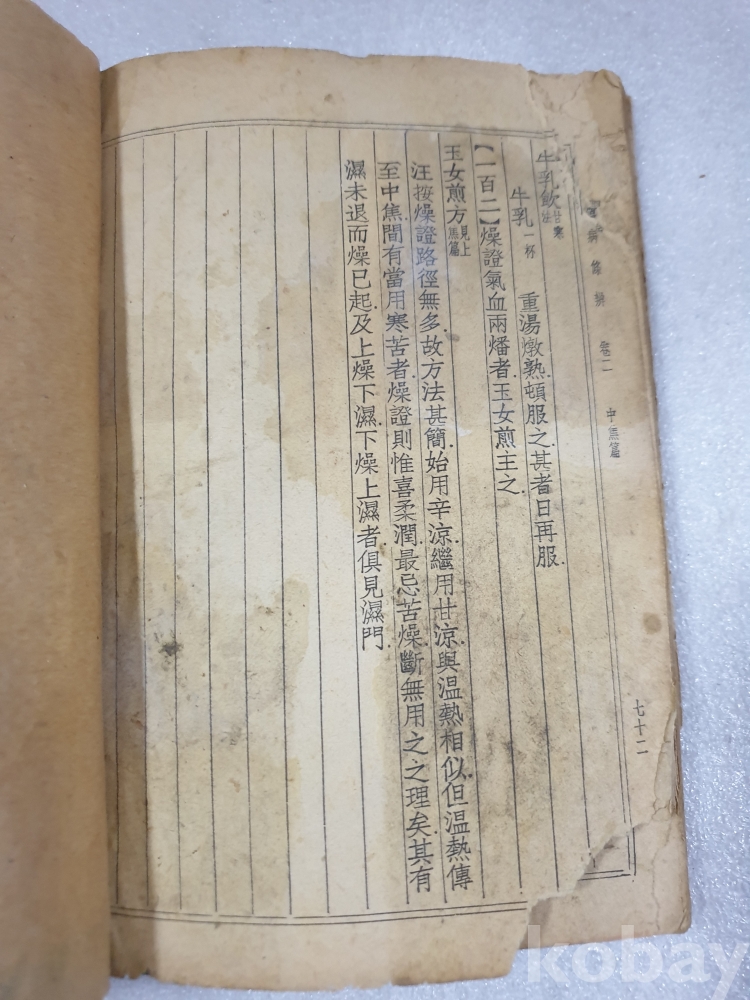 卷二　中焦篇　七十二
牛乳飲甘寒法
牛乳一杯　重湯燉熟.頓服之.甚者日再服.
【一百二】燥證氣血兩燔者.玉女煎主之.
玉女煎方見上焦篇
汪按燥證路徑無多.故方法甚簡.始用辛涼.繼用甘涼.與溫熱相似.但溫熱傳
至中焦.間有當用寒苦者.燥證則惟喜柔潤.最忌苦燥.斷無用之之理矣.其有
濕未退而燥已起.及上燥下濕.下燥上濕者.俱見濕門.
kobay